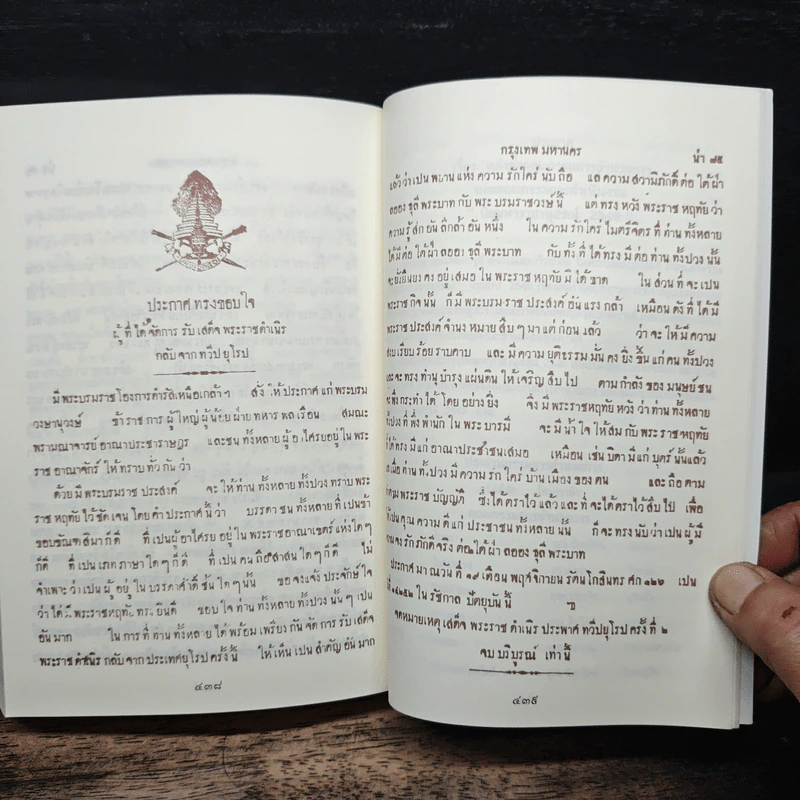 ประกาศ ทรงขอบใจ
ผู้ ที่ ได้ จัดการ รับ เสด็จ พระราช ดำเนิร
กลับ จาก ทวีป ยุโรป
มี พระบรมราช โองการดำรัสเหนือเกล้า ฯ สั่ง ให้ ประกาศ แก่ พระบรม
วงษานุวงษ์ ข้า ราช การ ผู้ ใหญ่ ผู้ น้อย ฝ่าย ทหาร พลเรือน สมณะ
พราหมณาจารย์ อาณาประชาราษฎร และชน ทั้งหลาย ผู้ อาไศรย อยู่ ใน พระ
ราช อาณาจักร์ ให้ ทราบ ทั่ว กัน ว่า
ด้วย มี พระบรมราช ประสงค์ จะ ให้ ท่าน ทั้งหลาย ทั้งปวง ทราบ พระ
ราช หฤทัย ไว้ ชัด เจน โดย คำ ประกาศ นี้ ว่า บรรดา ชน ทั้งหลาย ที่ เปนข้า
ขอบขัณฑ สิมา ก็ ดี ที่ เปน ผู้ อาไศรย อยู่ ใน พระราช อาณาเขตร์ แห่ง ใด ๆ
ก็ ดี ที่ เปน เภท ภาษา ใด ๆ ก็ ดี ที่ เปน คน ถือ สาสน ใด ๆ ก็ ดี ไม่
จำเพาะ ว่า เปน ผู้ อยู่ ใน บรรดาศักดิ์ ชั้น ใด ๆ นั้น ขอ แจ้ง ประจักษ์ ใจ
ว่า ได้ มี พระราชหฤทัย ทรง ยินดี ขอบ ใจ ท่าน ทั้งหลาย ทั้งปวง นั้น ๆ เปน
อัน มาก ใน การ ที่ ท่าน ทั้งหลาย ได้ พร้อม เพรียง กัน จัด การ รับ เสด็จ
พระราช ดำเนิร กลับ จาก ประเทศ ยุโรป ครั้ง นี้ ให้ เห็น เปน สำคัญ อัน มาก
๔๓๘
กรุงเทพ มหานคร น่า ๗๕
แล้ว ว่า เปน พยาน แห่ง ความ รัก ใคร่ นับ ถือ แล ความ สวามิภักดิ์ ต่อ ใต้ ฝ่า
ลออง ธุลี พระบาท กับ พระ บรมราชวงษ์ นี้ แต่ ทรง หวัง พระราช หฤทัย ว่า
ความ รู้ สึก อัน ลึกล้ำ อัน หนึ่ง ใน ความ รัก ใคร่ ไมตรีจิตร ที่ ท่าน ทั้งหลาย
ได้ มี ต่อ ใต้ ฝ่า ลออง ธุลี พระบาท กับ ทั้ง ที่ ได้ ทรง มี ต่อ ท่าน ทั้งปวง นั้น
จะ ยั่งยืน คง อยู่ เสมอ ใน พระราช หฤทัย มิ ได้ ขาด ใน ส่วน ที่ จะ เปน
พระราช กิจ นั้น ก็ มี พระบรม ราช ประสงค์ อัน แรง กล้า เหมือน ดัง ที่ ได้ มี
พระราช ประสงค์ จำนง หมาย สืบ ๆ มา แต่ ก่อน แล้ว ว่า จะ ให้ มี ความ
สงบ เรียบ ร้อย ราบคาบ และ มี ความ ยุติธรรม มั่น คง ยิ่ง ขึ้น แก่ คน ทั้งปวง
และ จะ ทรง ทำนุ บำรุง แผ่นดิน ให้ เจริญ สืบ ไป ตาม กำลัง ของ มนุษย์ ชน
จะ พึง กระทำ ได้ โดย อย่าง ยิ่ง จึง มี พระราช หฤทัย หวัง ว่า ท่าน ทั้งหลาย
ทั้งปวง ที่ พึ่ง พำนัก ใน พระ บารมี จะ มี น้ำ ใจ ให้ สม กับ พระราช หฤทัย
ที่ ได้ ทรง มี แก่ อาณาประชาชน เสมอ เหมือน เช่น บิดา มี แก่ บุตร์ นั้นแล้ว
เมื่อ ท่าน ทั้งปวง มี ความ รัก ใคร่ บ้าน เมือง ของ ตน และ ถือ ตาม
พระราช บัญญัติ ซึ่ง ได้ ตรา ไว้ แล้ว และ ที่ จะ ได้ ตรา ไว้ สืบ ไป เพื่อ
ให้เปน คุณ ความ ดี แก่ ประชาชน ทั้งหลาย นั้น ก็ จะ ทรง นับ ว่า เปน ผู้ มี
ความ จง รัก ภักดี จริง ต่อ ใต้ ฝ่า ลออง ธุลี พระบาท
ประกาศ มา ณ วัน ที่ ๑๙ เดือน พฤศจิกายน รัตนโกสินทร ศก ๑๒๖ เปน
ใน รัชกาล ปัตยุบัน นี้ ฯ
จดหมายเหตุ เสด็จ พระราช ดำเนิร ประพาศ ทวีปยุโรป ครั้ง ที่ ๒
จบ บริบูรณ์ เท่า นี้
๔๓๙